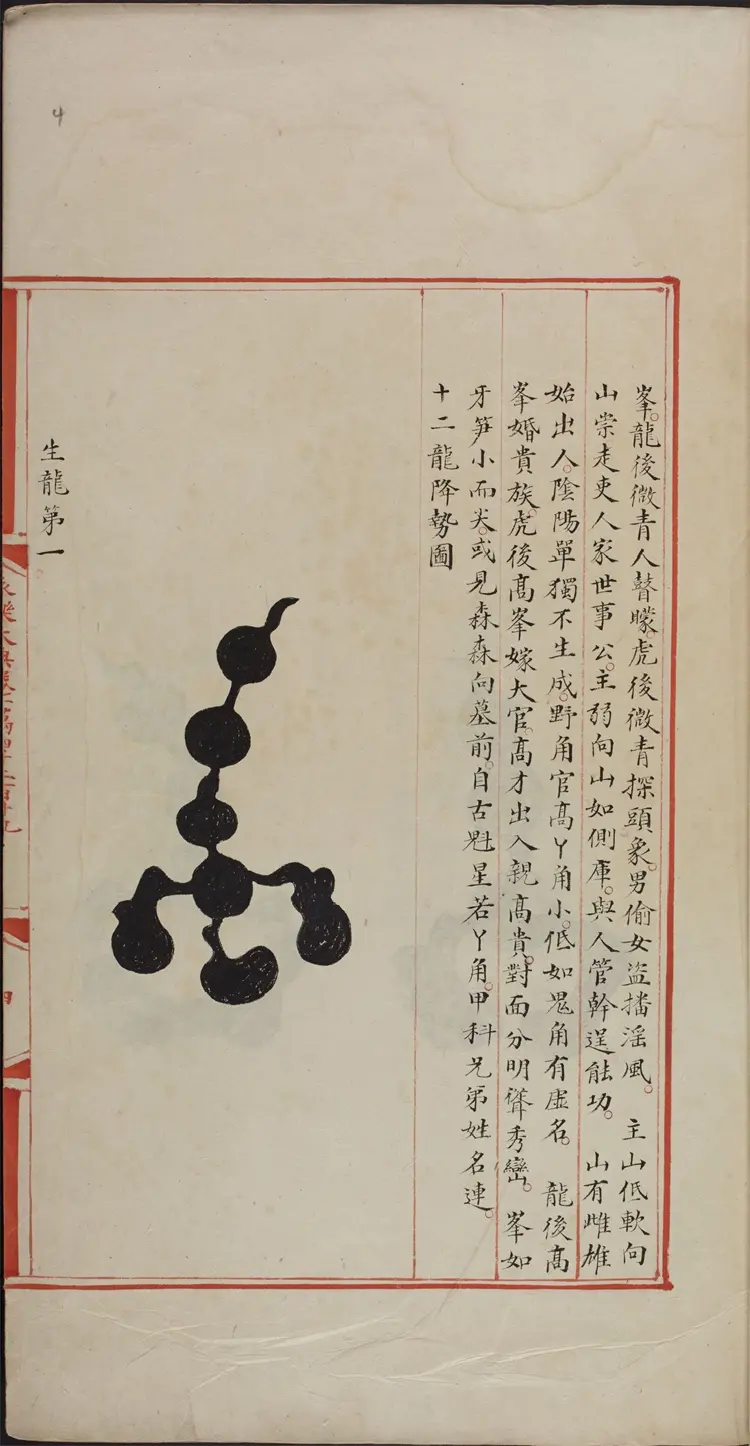 4
峯。龍後微青人瞽矇。虎後微青探頭象。男偷女盜播淫風。 主山低軟向
山崇走吏人家世事公。主弱向山如側庫。與人管幹逞能功。 山有雌雄
始出人。陰陽單獨不生成。野角官高丫角小。低如鬼角有虛名。 龍後高
峯婚貴族。虎後高峯嫁大官。高才出入親高貴。對面分明聳秀巒。 峯如
牙笋小而尖。或見森森向墓前。自古魁星若丫角。甲科兄弟姓名連。
十二龍降勢圖
生龍第一